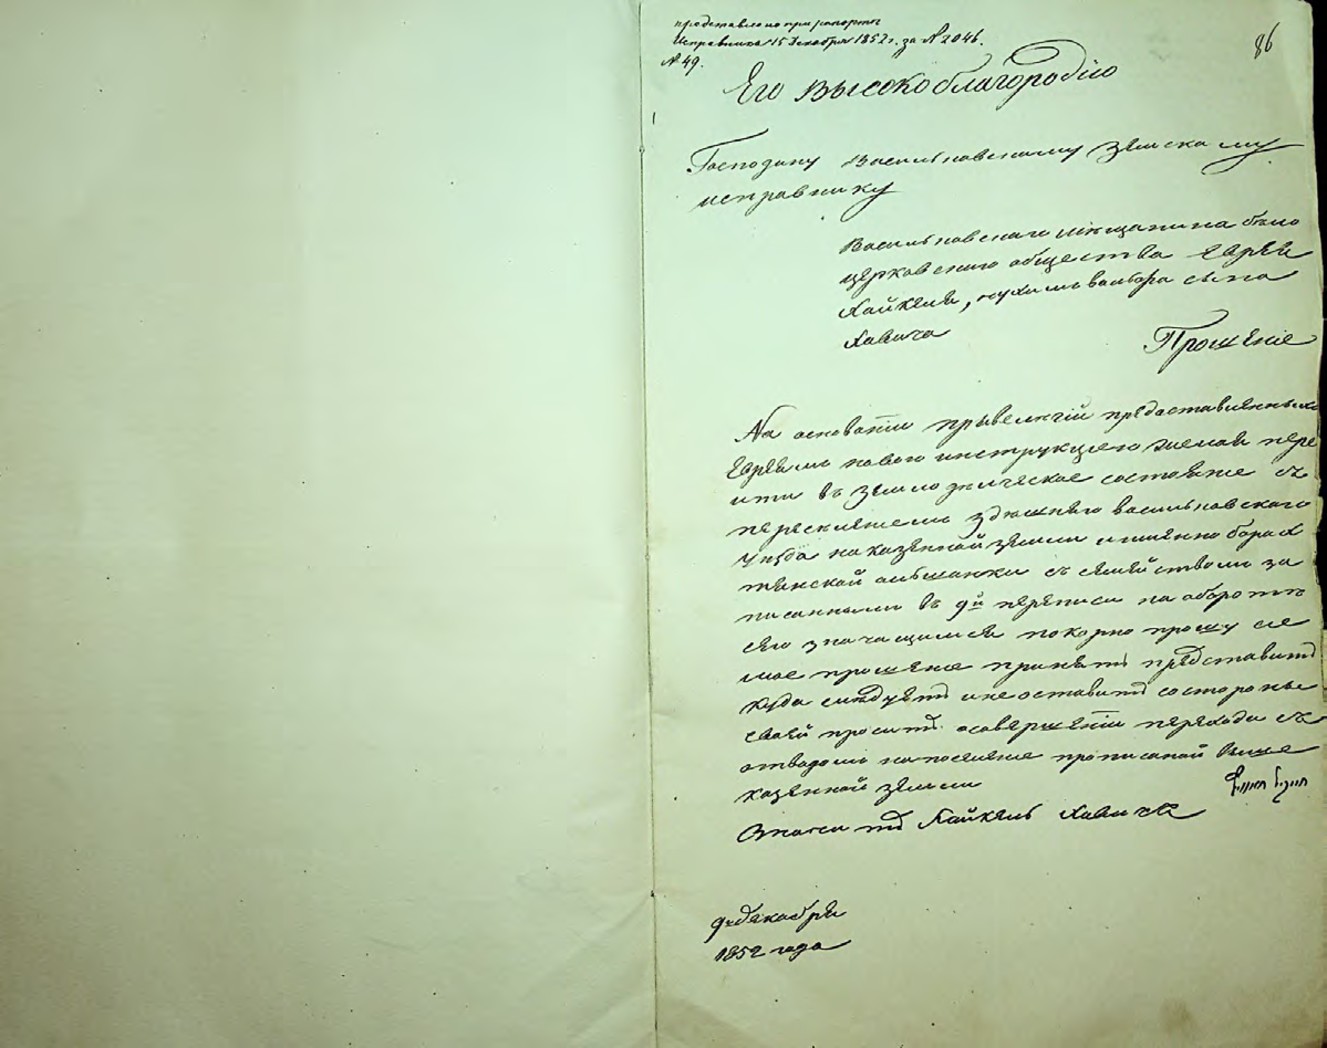 представлено при рапорте
Исправника 15 Декабря 1852 г. за № 2046.
№ 49.
86
Его Высокоблагородію
Господину Васильковскому Земскому
исправнику
Васильковскаго мещанина бело
церковскаго общества Еврея
Хайкеля, сына
Хавича
Прошеніе
На основаніи привелигій предоставленныхъ
Евреямъ новою инструкциею желаю пере
йти въ земледелческое состояние съ
переселениемъ здешняго васильковского
уезда на казенной земли именно
ольшанки съ семействомъ за
писаннымъ въ 9й переписи на обороте
сего значащимся покорно прошу сие
мое прошение принять представить
куда следуетъ и не оставить со стороны
своей просить осовершеніи перехода съ
отводомъ на поселение прописаной выше
казенной земли
חייקיל
Значитъ Хайкель Хавичъ
9 декабря
1852 года